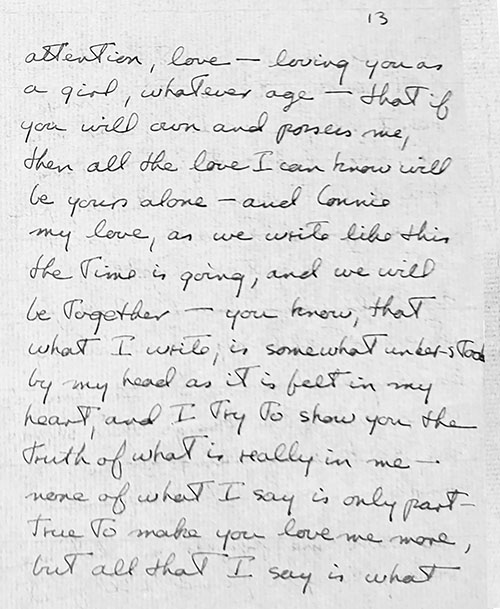 13
attention, love — loving you as
a girl, whatever age — that if
you will own and possess me,
then all the love I can know will
be yours alone — and Connie
my love, as we write like this
the time is going, and we will
be together — you know, that
what I write, is somewhat under-stood
by my head as it is felt in my
heart, and I try to show you the
truth of what is really in me —
none of what I say is only part-
true to make you love me more,
but all that I say is what